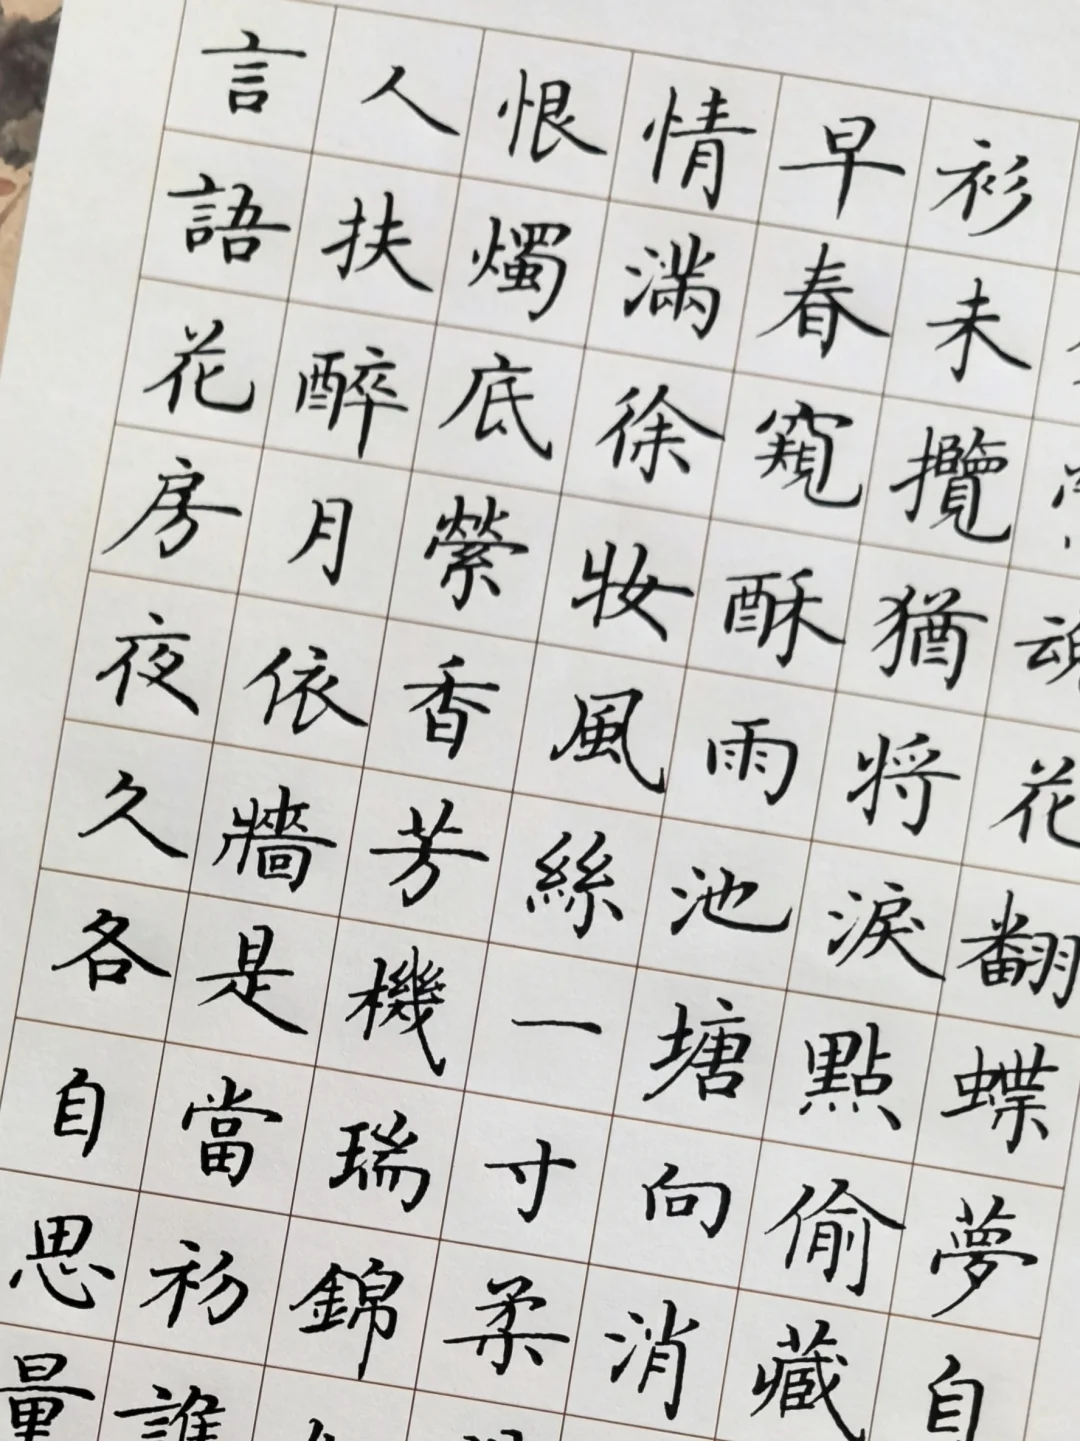 魂花翻
衫未攬猶將淚點偷藏
早春窺酥雨池塘向消
情滿徐妝風絲一寸柔
恨燭底縈香芳機瑞錦
人扶醉月依牆是當初誰
言語花房夜久各自思量
蝶夢自